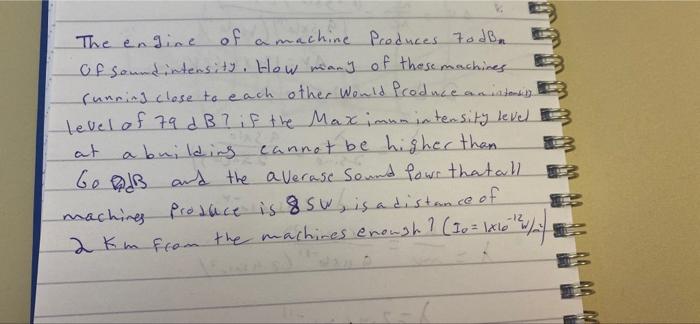 The engine of a machine Produces 70 dB
of sound intensity. How many of these machines
running close to each other would Produce an intensity
level of 79 dB? if the Maximum intensity level
at a building cannot be higher than
60 dB and the average sound Powr that all
machines Produce is 85W, is a distance of
2 Km from the machines enough? (I₀=1x10⁻¹²W/m²)